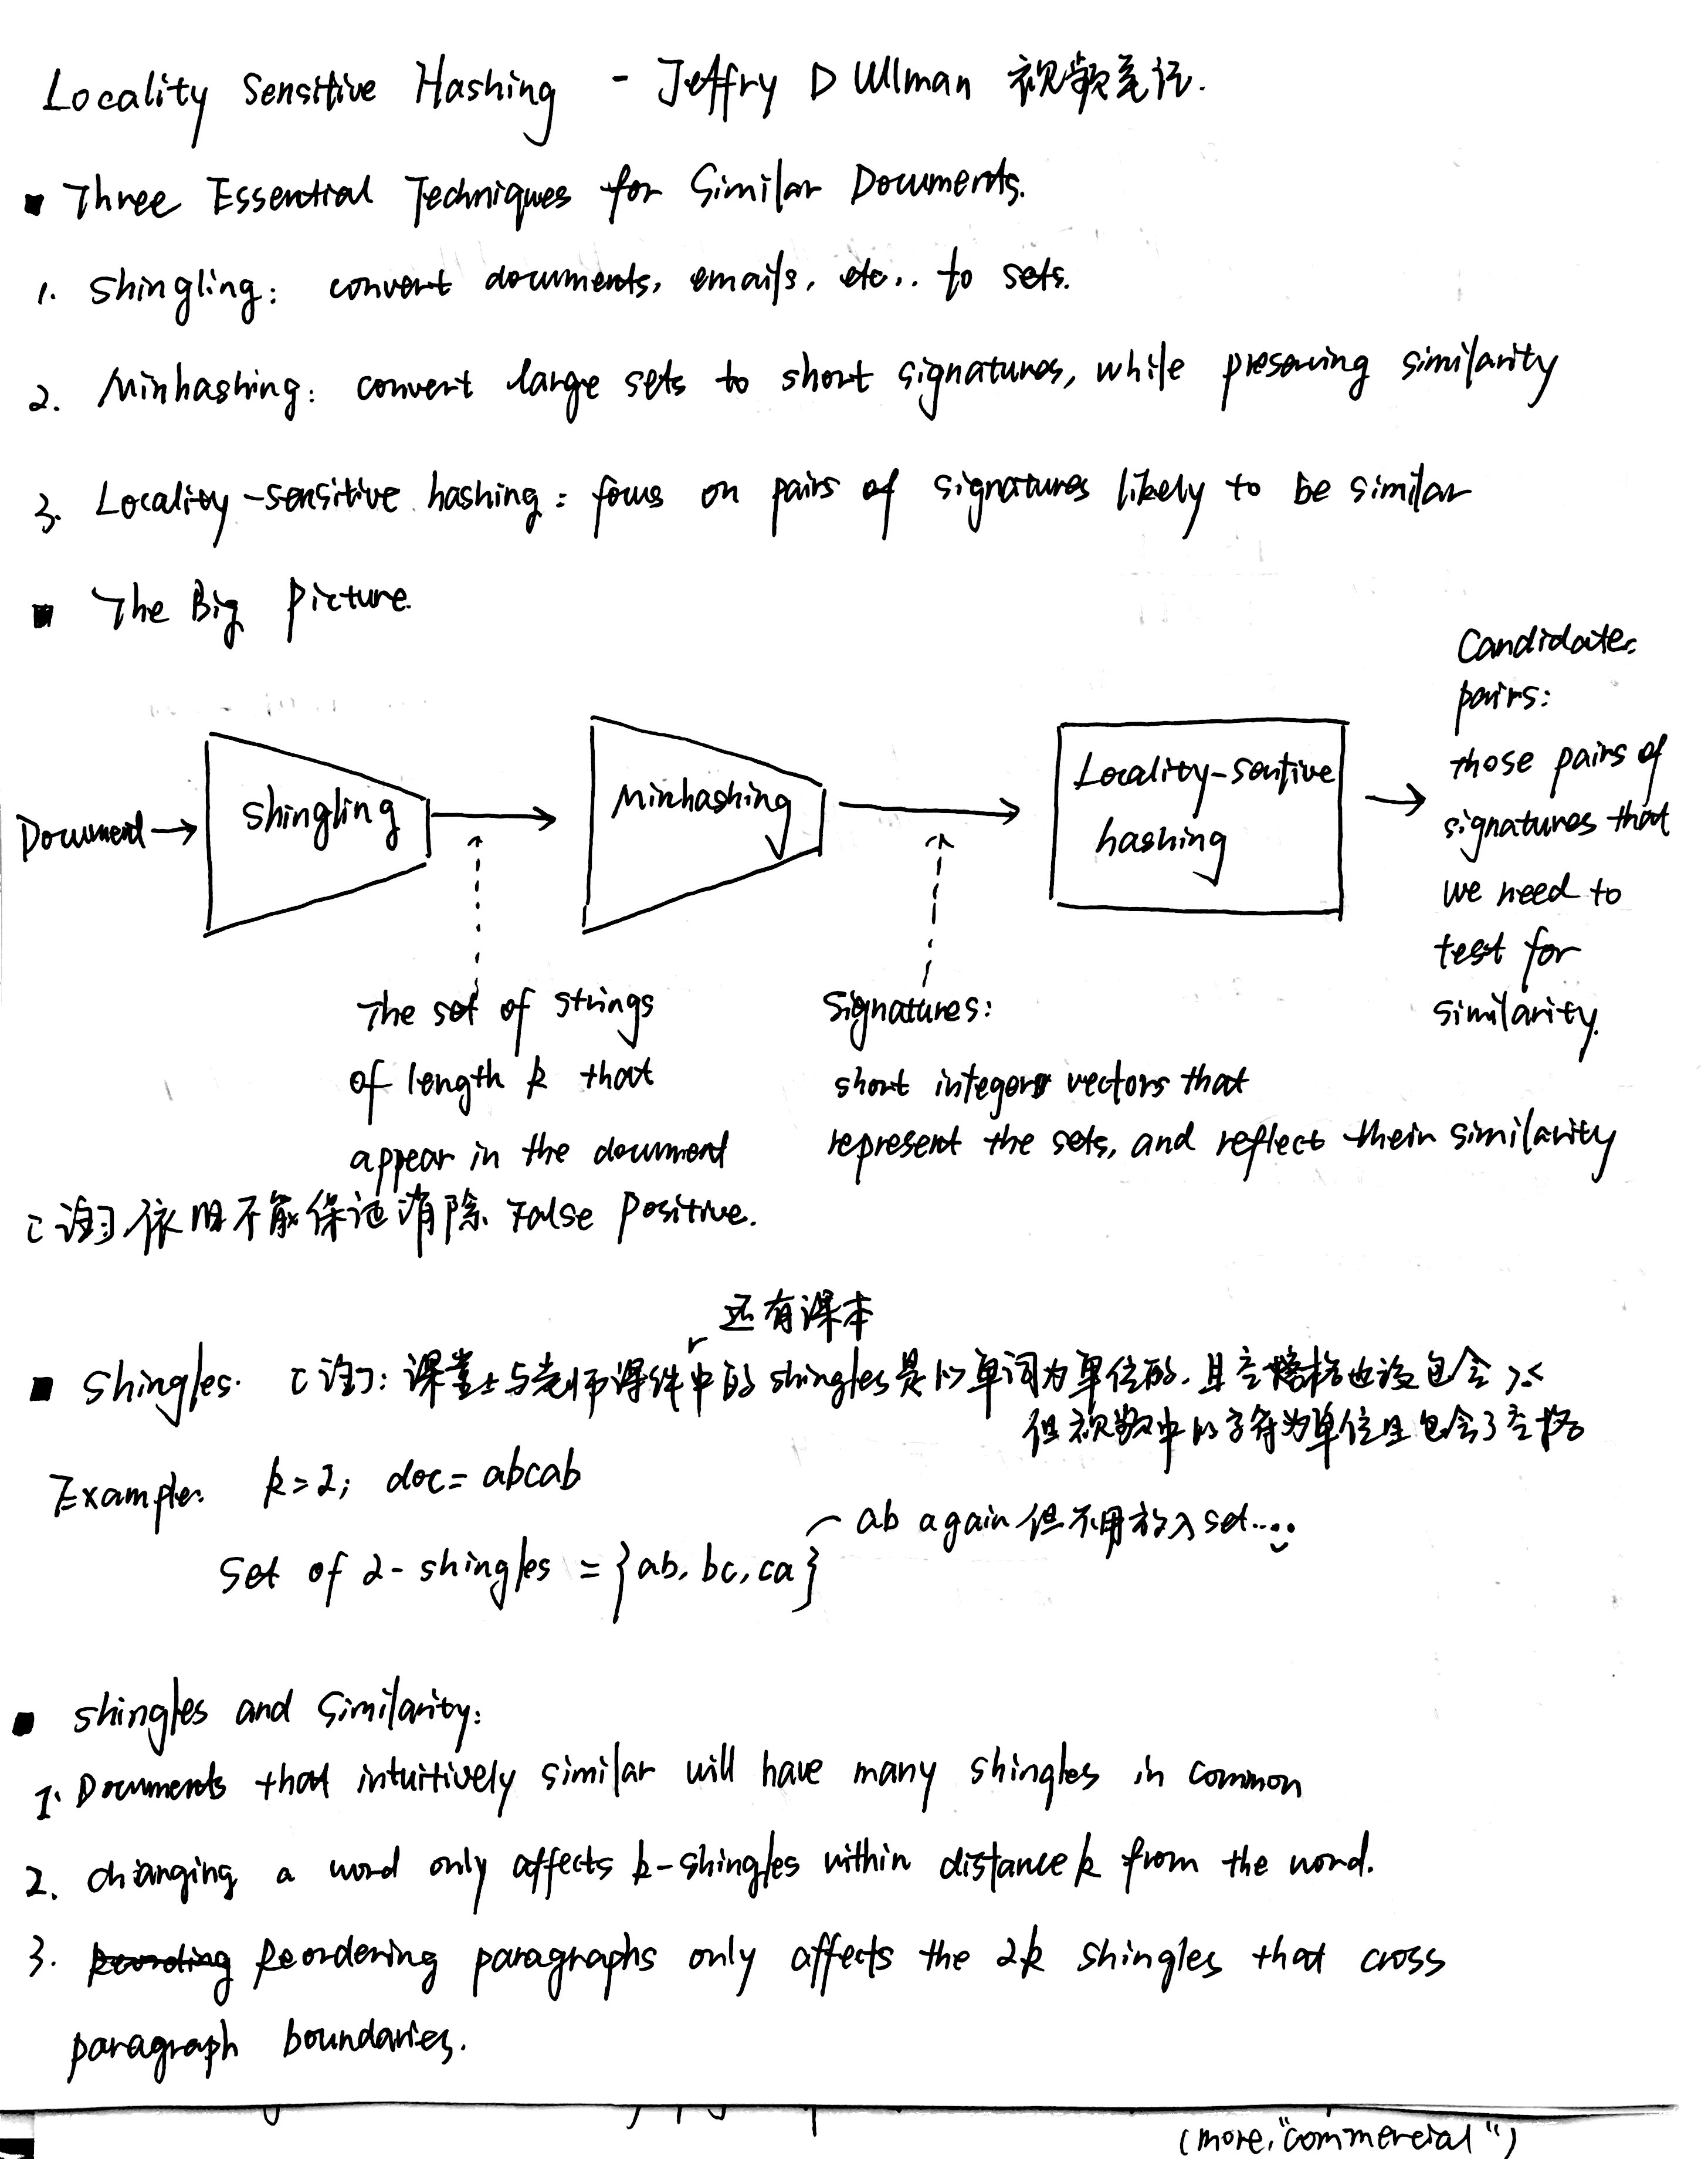 Locality Sensitive Hashing - Jeffry D Ullman 视频笔记.
Three Essential Techniques for Similar Documents.
1. Shingling: convert documents, emails, etc.. to sets.
2. Minhashing: convert large sets to short signatures, while preserving similarity
3. Locality-sensitive hashing: focus on pairs of signatures likely to be similar
The Big Picture.
Document
Shingling
Minhashing
Locality-sentive
hashing
Candidates
pairs:
those pairs of
signatures that
we need to
test for
similarity.
The set of strings
of length k that
appear in the document
Signatures:
short integers vectors that
represent the sets, and reflect their similarity
[注] 依旧不能保证消除 False Positive.
还有课本
Shingles. [注]: 课堂上与老师课件中的 shingles 是以单词为单位的, 且空格也没包含
但视频中以字符为单位且包含了空格
Example: k=2; doc= abcab
Set of 2-shingles = {ab, bc, ca}
ab again 但不用放入 set....
shingles and Similarity:
1. Documents that intuitively similar will have many shingles in common
2. changing a word only affects k-shingles within distance k from the word.
3. Reordering paragraphs only affects the 2k shingles that cross
paragraph boundaries.
(more, "commercial")